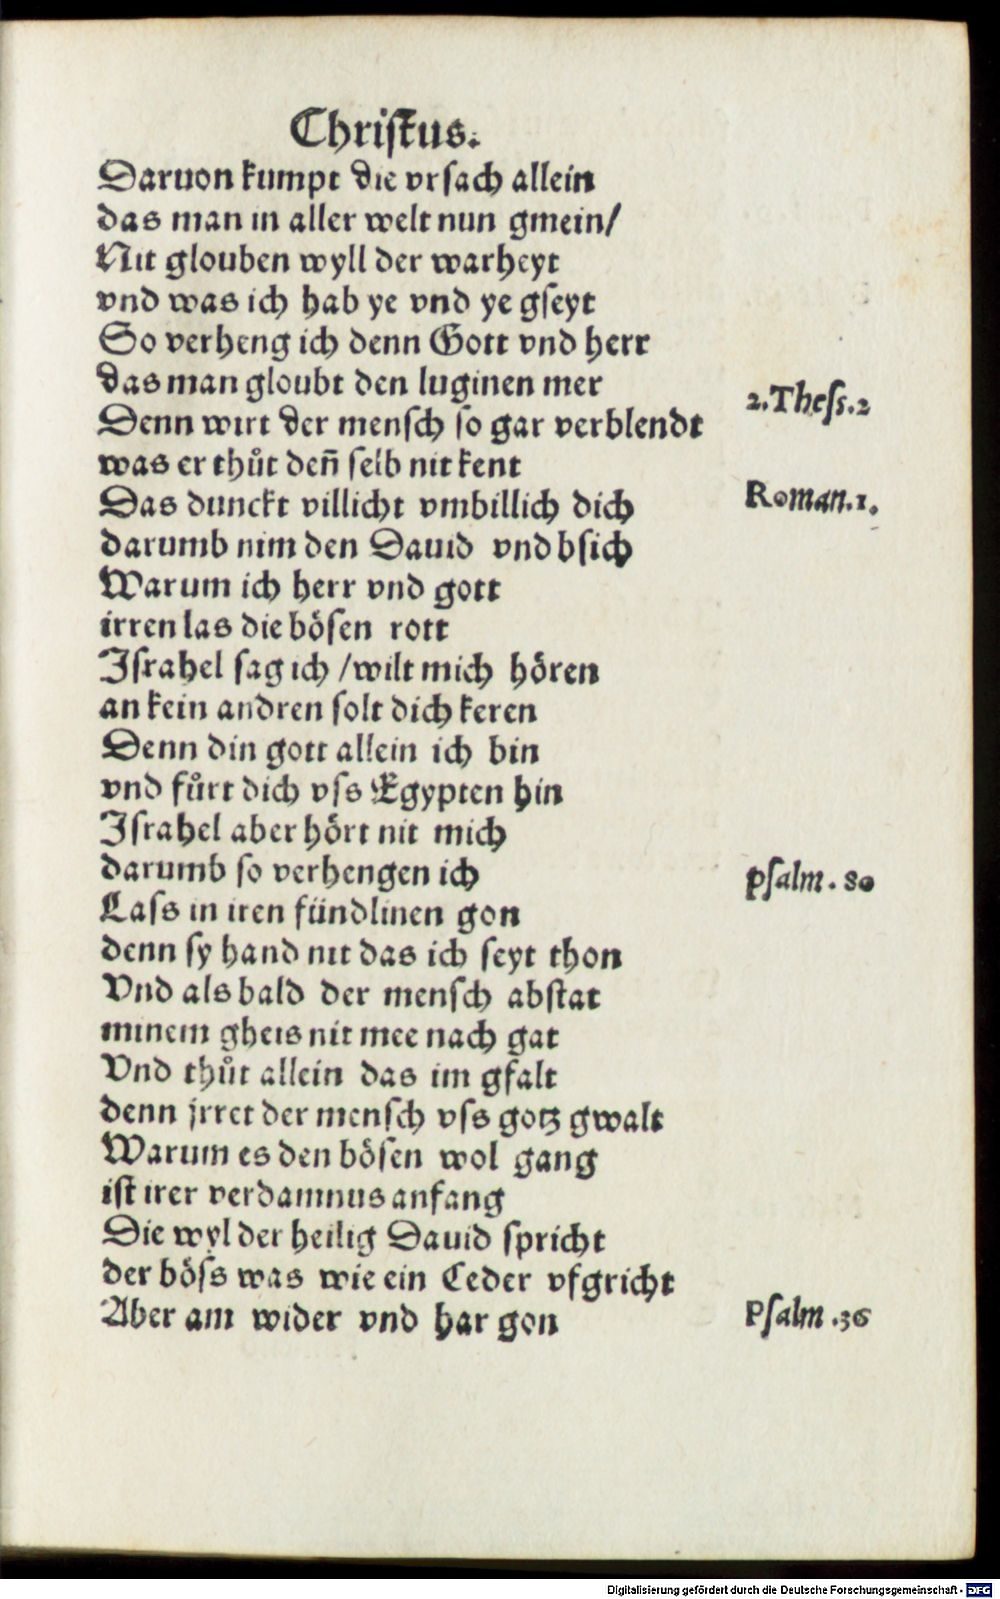 Christus.
Daruon kumpt die vrsach allein
das man in aller welt nun gmein/
Nit glouben wyll der warheyt
vnd was ich hab ye vnd ye gseyt
So verheng ich denn Gott vnd herr
das man gloubt den luginen mer
2.Thess.2
Denn wirt der mensch so gar verblendt
was er thůt deñ selb nit kent
Roman.1.
Das dunckt villicht vmbillich dich
darumb nim den Dauid vnd bsich
Warum ich herr vnd gott
irren las die bösen rott
Israhel sag ich /wilt mich hören
an kein andren solt dich keren
Denn din gott allein ich bin
vnd fůrt dich vss Egypten hin
Israhel aber hört nit mich
darumb so verhengen ich
psalm.80
Lass in iren fündlinen gon
denn sy hand nit das ich seyt thon
Vnd als bald der mensch abstat
minem gheis nit mee nach gat
Vnd thůt allein das im gfalt
denn jrret der mensch vss gotz gwalt
Warum es den bösen wol gang
ist irer verdamnus anfang
Die wyl der heilig Dauid spricht
der böss was wie ein Ceder vfgricht
Aber am wider vnd har gon
Psalm.36
Digitalisierung gefördert durch die Deutsche Forschungsgemeinschaft - DFG